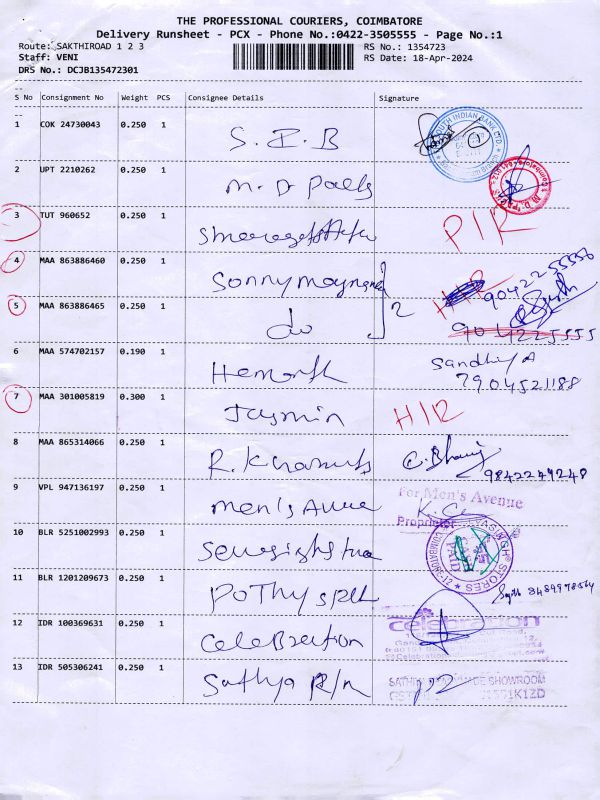 THE PROFESSIONAL COURIERS, COIMBATORE
Delivery Runsheet - PCX - Phone No.:0422-3505555 - Page No.:1
Route: SAKTHIROAD 1 2 3 RS No.: 1354723
Staff: VENI RS Date: 18-Apr-2024
DRS No.: DCJB135472301
S No Consignment No Weight PCS Consignee Details Signature
1 COK 24730043 0.250 1 S.I.B
SOUTH INDIAN BANK LTD.
2 UPT 2210262 0.250 1 M.D Palls
3 TUT 960652 0.250 1 P/R
4 MAA 863886460 0.250 1 Sonny 2 9042255556
5 MAA 863886465 0.250 1 do 9042225555
6 MAA 574702157 0.190 1 Hemonth Sandhiya
7904521188
7 MAA 301005819 0.300 1 Jasmin H/R
8 MAA 865314066 0.250 1 R.K C.Bharij
9842249248
9 VPL 947136197 0.250 1 men's Avnue For Men's Avenue
Proprietor
10 BLR 5251002993 0.250 1
STORES
COIMBATORE
PAID
11 BLR 1201209673 0.250 1 Pothys 8489978564
12 IDR 100369631 0.250 1 celebration celebration
13 IDR 505306241 0.250 1 Sathya R/m SHOWROOM